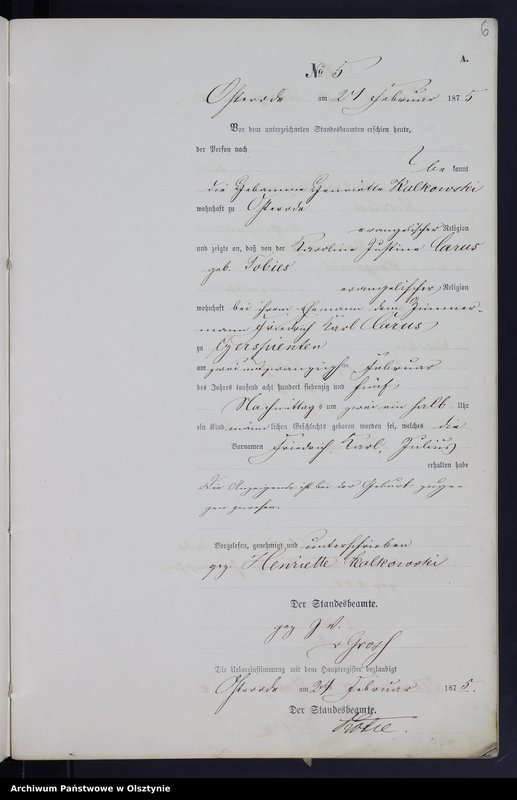 6
A.
No 5
Osterode am 24 Februar 1875
Vor dem unterzeichneten Standesbeamten erschien heute,
der Person nach
be kannt
die Hebamme Henriette Kalkowski
wohnhaft zu Osterode
evangelischer Religion
und zeigte an, daß von der Karoline Justine Carus
geb. Tobies
evangelischer Religion
wohnhaft bei ihrem Ehemann dem Zimmer-
mann Friedrich Karl Carus
zu
am zwei und zwanzigsten Februar
des Jahres tausend acht hundert siebenzig und fünf
Nachmittags um zwei ein halb Uhr
ein Kind männlichen Geschlechts geboren worden sei, welches die
Vornamen Friedrich, Karl, Julius
erhalten habe
Die Anzeigende ist bei der Geburt zuge-
gen gewesen.
Vorgelesen, genehmigt und unterschrieben
gez. Henriette Kalkowski
Der Standesbeamte.
gez
v
Die Uebereinstimmung mit dem Hauptregister beglaubigt
Osterode am 24 Februar 1875.
Der Standesbeamte.
Archiwum Państwowe w Olsztynie